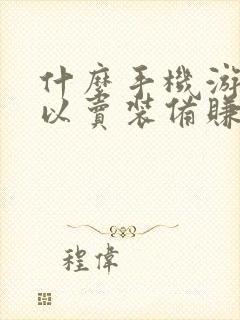 什麼手機游
以賣裝備賺
程偉